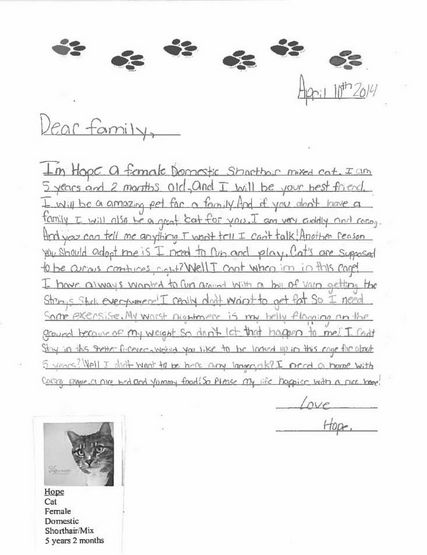 April 10th 2014
Dear family,
I'm Hope a female Domestic Shorthair mixed cat. I am
5 years and 2 months old, And I will be your best friend.
I will be a amazing pet for a family. And if you don't have a
family I will also be a great cat for you. I am very cuddly and
And you can tell me anything I won't tell I can't talk! Another reason
you should adopt me is I need to run and play. Cat's are supposed
to be right? Well I cant when im in this cage!
I have always wanted to run around with a of yarn getting the
String Stuck everywhere! I really don't want to get fat So I need
Some My worst nightmare is my belly on the
ground because of my weight So don't let that happen to me! I can't
Stay in this Shelter forever. would you like to be locked up in this cage for about
5 years? Well I don't want to be here any longer, ok? I need a home with
a nice bed and yummy food! So Please my life with a nice home!
Love
Hope.
Hope
Cat
Female
Domestic
Shorthair/Mix
5 years 2 months